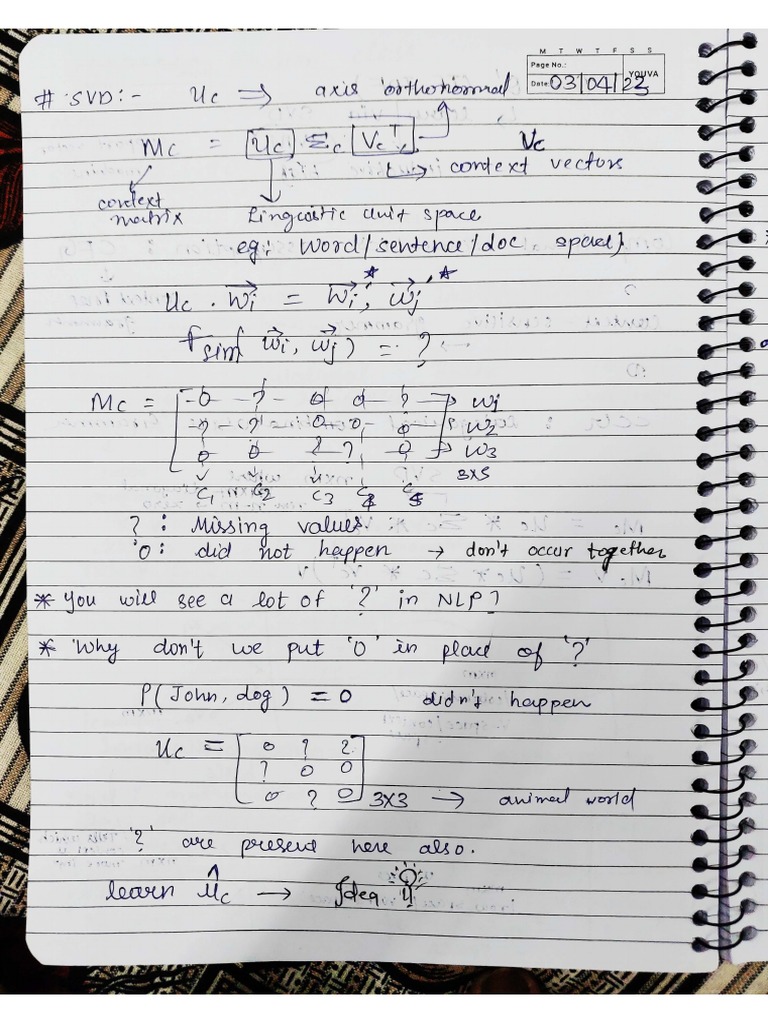 M T W T F S S
Page No.:
YOUVA
Date: 03/04/23
# SVD:- Uc ⇒ axis orthonormal
Mc = Uc Σc Vcᵀ Vc
→ context vectors
context matrix
Linguistic unit space
eg: Word/sentence/doc space)
Uc . wi = wi'*, wj'*
sim( wi, wj ) = ?
Mc = [ 0 ? 0 0 ? → w1
? ? 0 0 0 → w2
0 0 ? ? 0 ] → w3
3x5
C1 C2 C3 C4 C5
? : Missing values
'0: did not happen → don't occur together
* You will see a lot of '?' in NLP?
* Why don't we put '0' in place of '?'
P(John, dog) = 0 didn't happen
Uc = [ 0 ? ?
? 0 0
0 ? 0 ] 3x3 → animal world
'?' are present here also.
learn Ûc → Idea